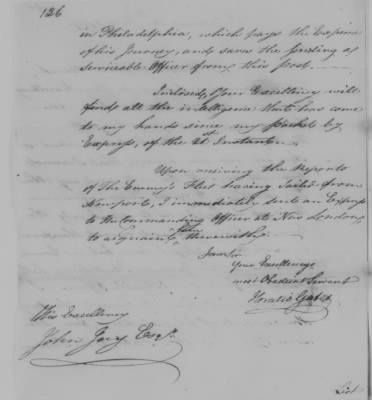 126
in Philadelphia, which pays the Expence
of his Journey, and saves the sending a
serviceable Officer from this post.
Inclosed, Your Excellency will
find, all the intelligence that has come
to my hands since my packet by
Express, of the 21st Instant.
Upon receiving the Reports
of The Enemy's Fleet having Sailed from
Newport, I immediately sent an Express
to the Commanding Officer at New London,
to acquaint him therewith.
I am Sir
Your Excellency's
most Obedient Servant
Horatio Gates
His Excellency
John Jay Esqr.